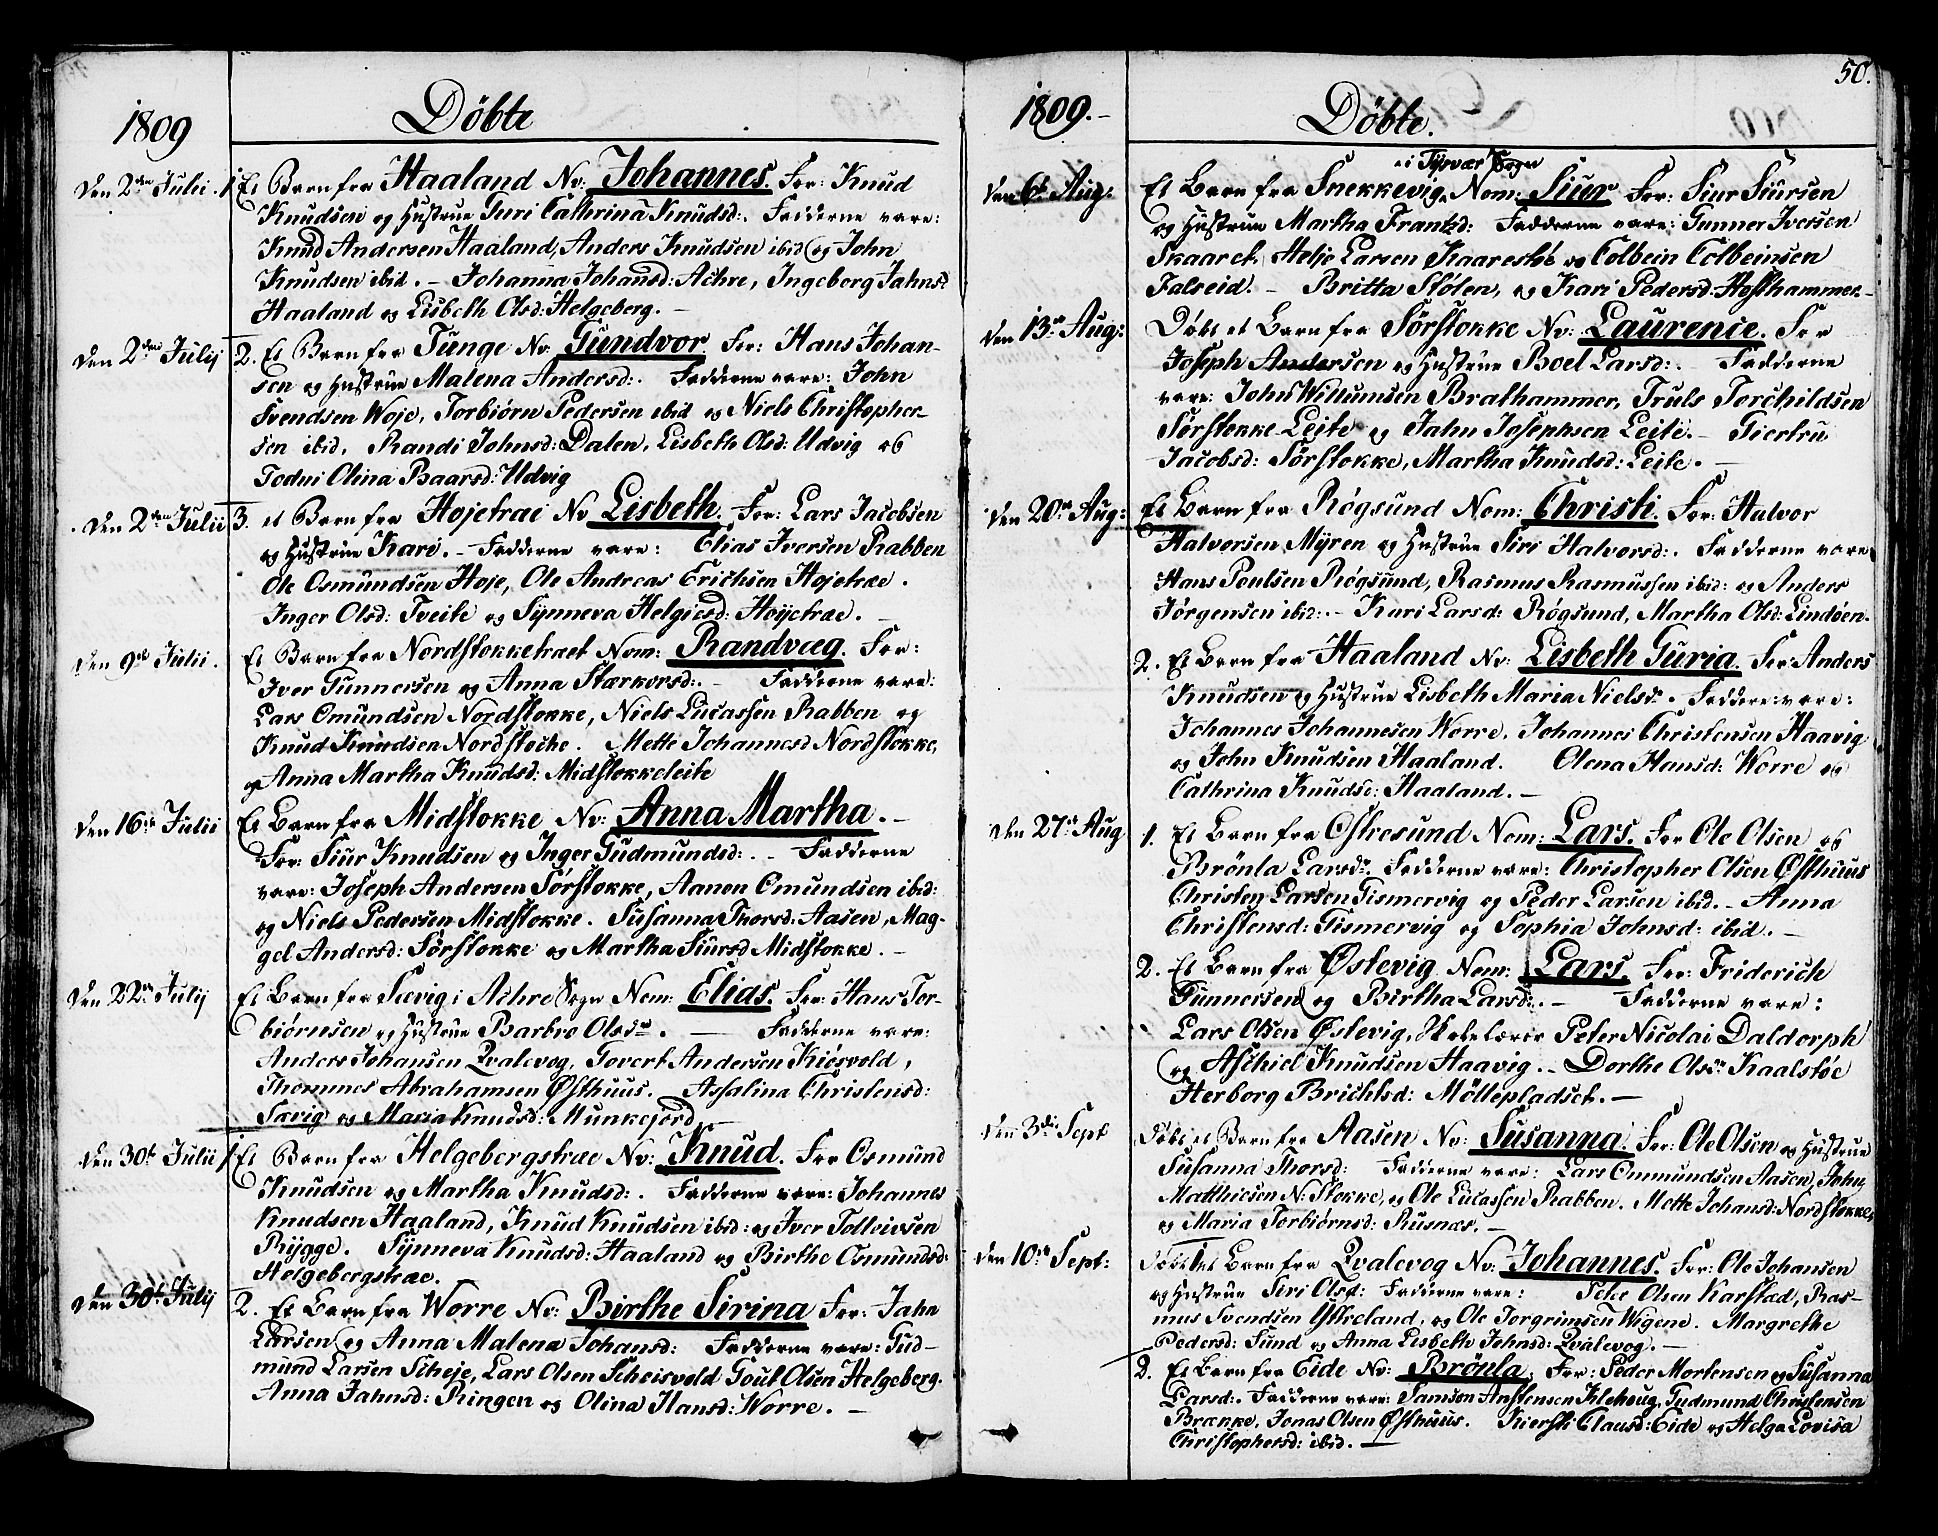 1809
Döbte
Den 2den Julii.
1. Et Barn fra Haaland Nv: Johannes. For: Knud
Knudsen og Hustrue Guri Cathrina Knudsd:. Fadderne vare:
Knud Andersen Haaland, Anders Knudsen ibid og John
Knudsen ibid. – Johanna Johansd: Achre, Ingeborg Jahnsd:
Haaland og Lisbeth Olsd: Helgeberg. –
Den 2den Julij
2. Et Barn fra Tunge Nv: Gundvor. For: Hans Johan-
sen og Hustrue Malena Andersd:. Fadderne vare: John
Svendsen Woje, Torbiörn Pedersen ibid og Niels Christopher-
sen ibid. Randi Johnsd: Dalen, Lisbeth Olsd: Udvig og
Todni Olina Baarsd: Udvig
Den 2den Julii
3. et Barn fra Hojetrai Nv Lisbeth. For: Lars Jacobsen
og Hustrue Kari. – Fadderne vare: Elias Iversen Rabben
Ole Osmundsen Hoje, Ole Andreas Erichsen Hojetræ.
Inger Olsd: Tveite og Synneva Helgiesd: Hoyetræ. –
Den 9de Julii.
Et Barn fra Nordstokketraet Nom: Randvæg. For:
Iver Gunnersen og Anna Stærkorsd:. – Fadderne vare:
Lars Omundsen Nordstokke, Niels Lucassen Rabben og
Knud Knudsen Nordstoche. Mette Johannesd Nordstokke,
og Anna Martha Knudsd: Midstokkeleite
Den 16de Julii
Et Barn fra Midstokke Nv: Anna Martha. –
For: Siur Knudsen og Inger Gudmundsd:. – Fadderne
vare: Joseph Andersen Sörstokke, Aanon Omundsen ibid:
og Niels Pedersen Midstokke. Susanna Thorsd: Aasen, Mag-
gel Andersd: Sörstokke og Martha Siursd Midstokke. –
Den 22de Julij
Et Barn fra Sævig i Achre Sogn Nom: Elias. For: Hans Tor-
biörnsen og Hustrue Barbro Olsdr. – Fadderne vare:
Anders Johansen Qvalevog, Govert Andersen Kiösvold,
Thommes Abrahamsen Östhuus. Assalina Christensd:
Sævig og Maria Knudsd: Munkejord
Den 30te Julii
1. Et Barn fra Helgebergstræe Nv: Knud. For Osmund
Knudsen og Martha Knudsd:. Fadderne vare: Johannes
Knudsen Haaland, Knud Knudsen ibid: og Iver Tollvivsen
Rygge. Synneva Knudsd: Haaland og Birthe Osmundsd:
Helgebergstræe.
Den 30te Julij
2. Et Barn fra Worre Nv: Birthe Sirina For: Jahn
Larsen og Anna Malena Johansd: Fadderne vare: Gud-
mund Larsen Scheje, Lars Olsen Scheisvold Goul Olsen Helgeberg.
Anna Jahnsd: Ringen og Olina Hansd: Worre. –
50.
1809. –
Döbte.
Den 6te Aug:
i Tysvær Sogn
Et Barn fra Snekkevig. Nom: Siur For: Siur Siursen
og Hustrue Martha Frantzd: Fadderne vare: Gunner Iversen
Skaaret, Helje Larsen Kaarestöe og Colbein Colbeinsen
Falseid. – Britta Stölen, og Kari Pedersd: Hofthammer. –
Den 13de Aug:
Döbt et Barn fra Sörstokke Nv: Laurence. For
Joseph Andersen og Hustrue Boel Larsd:. – Fadderne
vare: John Willumsen Brathammer, Truls Torchildsen
Sörstokke-Leite og Jahn Josephsen Leite. – Giertru
Jacobsd: Sörstokke, Martha Knudsd: Leite. –
Den 20de Aug:
Et Barn fra Rögsund Nom: Christi. For: Halvor
Halvorsen Myren og Hustrue Siri Halvorsd:. Fadderne vare
Hans Poulsen Rögsund, Rasmus Rasmussen ibid: og Anders
Jörgensen ibid:. – Kari Larsd: Rögsund, Martha Olsd: Lindöen.
2. Et Barn fra Haaland Nv: Lisbeth Guria. For Anders
Knudsen og Hustrue Lisbeth Maria Nielsdr. Faddere vare:
Johannes Johannesen Worre, Johannes Christensen Haavig
og John Knudsen Haaland. Olena Hansd: Worre og
Cathrina Knudsd: Haaland. –
Den 27de Aug
1. Et Barn fra Ostresund Nom: Lars. For Ole Olsen og
Brönla Larsdr. Fadderne vare: Christopher Olsen Östhuus
Christen Larsen Tismervig og Peder Larsen ibid. – Anna
Christensd: Tismervig og Sophia Johnsd: ibid. –
2. Et Barn fra Östevig Nom: Lars. For: Friderich
Gunnersen og Birtha Larsd:. – Fadderne vare:
Lars Olsen Östevig, Skolelærer Peter Nicolai Daldorph
og Aschiel Knudsen Haavig. – Dorthe Olsdr Kaalstöe
Herborg Brichtsd: Möllepladset. –
Den 3die Sept
Döbt et Barn fra Aasen Nv: Susanna. For: Ole Olsen og Hustrue
Susanna Thorsd: Fadderne vare: Lars Ommundsen Aasen, John
Matthiesen N: Stokke, og Ole Lucassen Rabben. Mette Johansd: Nordstokke,
og Maria Torbiörnsd: Rusnæs. –
Den 10de Sept:
Döbt 1 et Barn fra Qvalevog Nv: Johannes. For: Ole Johansen
og Hustrue Siri Olsd: Fadderne vare: Peter Olsen Karstad, Ras-
mus Svendsen Ystreland, og Ole Jorgrimsen Wigene. Margrethe
Pedersd: Sund og Anna Lisbeth Johnsd: Qvalevog. –
2. Et Barn fra Eide Nv: Brönla, For: Peder Mortensen og Susanna
Larsd:. Fadderne vare: Samson Anstensen Klehoug, Gudmund Christensen
Brænke, Jonas Olsen Östhuus. Kiersti Clausd: Eide og Helga Lovisa
Christophersd: ibid. –